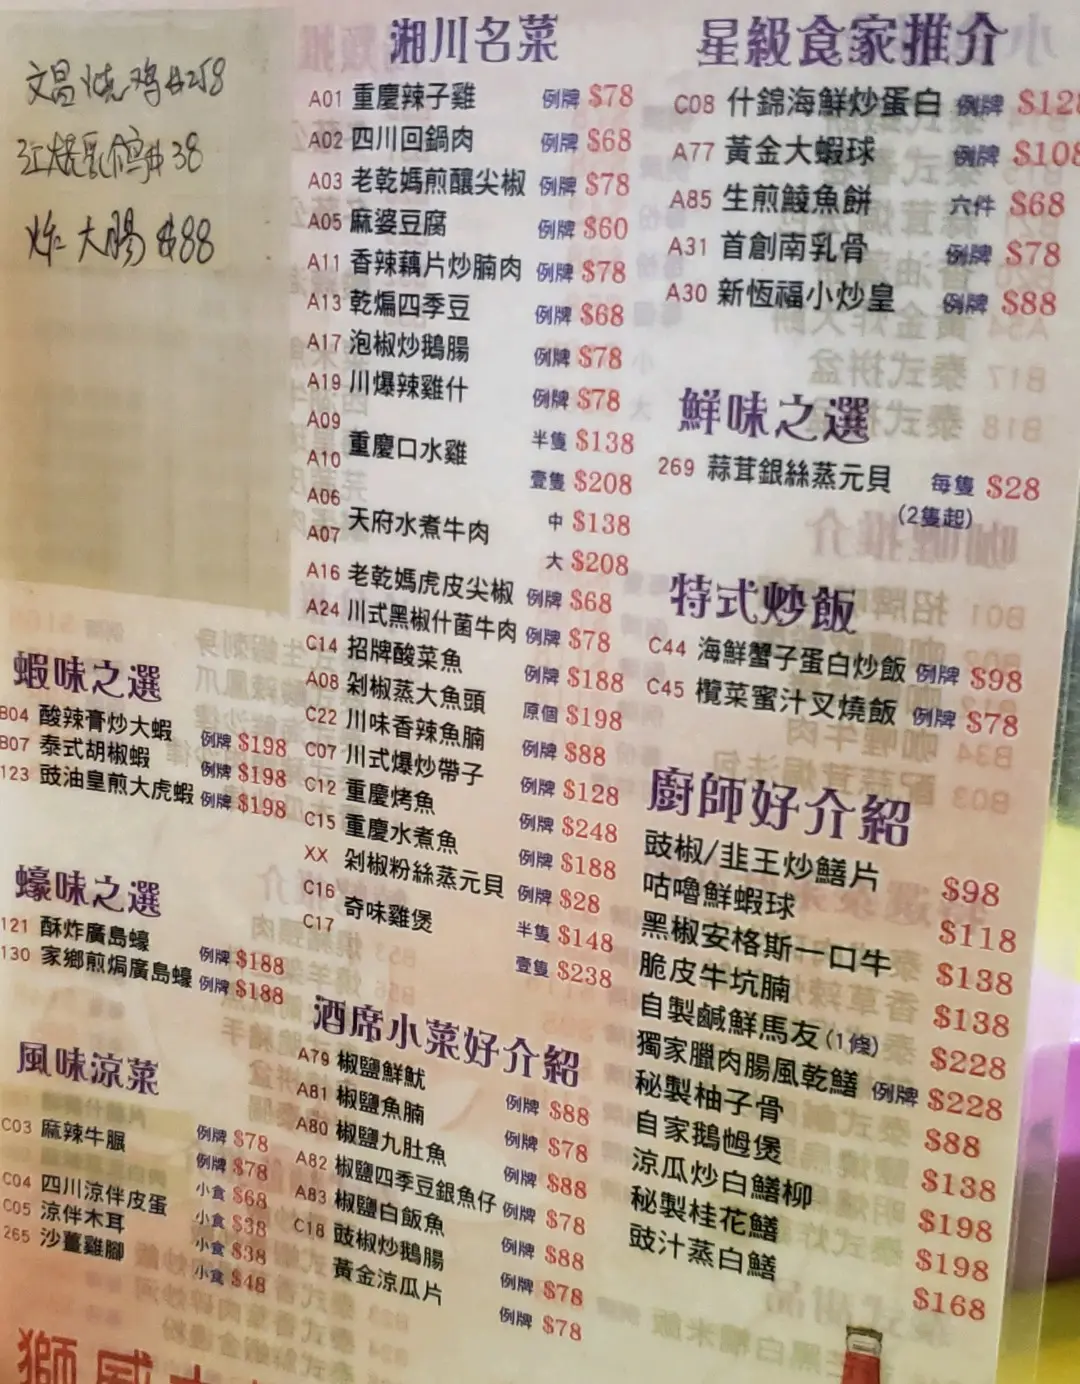 文昌烧鸡$258
红烧乳鸽$38
炸大腸$88
蝦味之選
B04 酸辣膏炒大蝦 例牌 $198
B07 泰式胡椒蝦 例牌 $198
123 豉油皇煎大虎蝦 例牌 $198
蠔味之選
121 酥炸廣島蠔 例牌 $188
130 家鄉煎焗廣島蠔 例牌 $188
風味涼菜
C03 麻辣牛𦟌 例牌 $78
例牌 $78
C04 四川涼伴皮蛋 小食 $68
C05 涼伴木耳 小食 $38
265 沙薑雞腳 小食 $38
小食 $48
湘川名菜
A01 重慶辣子雞 例牌 $78
A02 四川回鍋肉 例牌 $68
A03 老乾媽煎釀尖椒 例牌 $78
A05 麻婆豆腐 例牌 $60
A11 香辣藕片炒腩肉 例牌 $78
A13 乾煸四季豆 例牌 $68
A17 泡椒炒鵝腸 例牌 $78
A19 川爆辣雞什 例牌 $78
A09 重慶口水雞 半隻 $138
A10 壹隻 $208
A06 天府水煮牛肉 中 $138
A07 大 $208
A16 老乾媽虎皮尖椒 例牌 $68
A24 川式黑椒什菌牛肉 例牌 $78
C14 招牌酸菜魚 例牌 $188
A08 剁椒蒸大魚頭 原個 $198
C22 川味香辣魚腩 例牌 $88
C07 川式爆炒帶子 例牌 $128
C12 重慶烤魚 例牌 $248
C15 重慶水煮魚 例牌 $188
XX 剁椒粉絲蒸元貝 例牌 $28
C16 奇味雞煲 半隻 $148
C17 壹隻 $238
酒席小菜好介紹
A79 椒鹽鮮魷 例牌 $88
A81 椒鹽魚腩 例牌 $78
A80 椒鹽九肚魚 例牌 $88
A82 椒鹽四季豆銀魚仔 例牌 $78
A83 椒鹽白飯魚 例牌 $88
C18 豉椒炒鵝腸 例牌 $78
黃金涼瓜片 例牌 $78
星級食家推介
C08 什錦海鮮炒蛋白 例牌 $128
A77 黃金大蝦球 例牌 $108
A85 生煎鯪魚餅 六件 $68
A31 首創南乳骨 例牌 $78
A30 新恆福小炒皇 例牌 $88
鮮味之選
269 蒜茸銀絲蒸元貝 每隻 $28
(2隻起)
特式炒飯
C44 海鮮蟹子蛋白炒飯 例牌 $98
C45 欖菜蜜汁叉燒飯 例牌 $78
廚師好介紹
豉椒/韭王炒鱔片 $98
咕嚕鮮蝦球 $118
黑椒安格斯一口牛 $138
脆皮牛坑腩 $138
自製鹹鮮馬友(1條) $228
獨家臘肉腸風乾鱔 例牌 $228
秘製柚子骨 $88
自家鵝乸煲 $138
涼瓜炒白鱔柳 $198
秘製桂花鱔 $198
豉汁蒸白鱔 $168